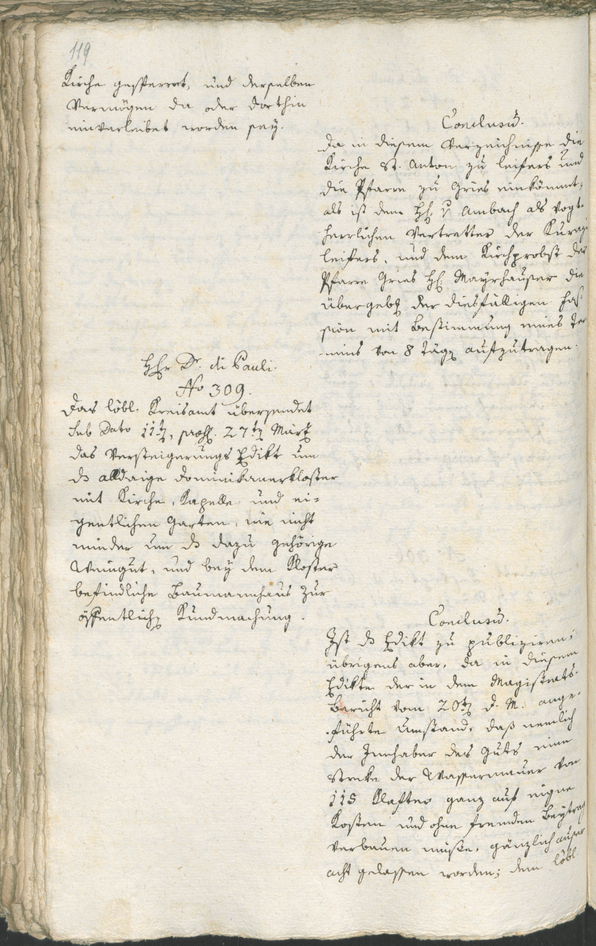 119
Kirche gesperret, und derselben
Vermögen da oder dorthin
einverleibet worden sey.
Conclusũ.
Da in diesem Verzeichnisse die
Kirche St. Anton zu Leifers und
die Pfarre zu Gries einkömmt,
als ist dem Hh. v. Ambach als Vogt-
herrlichen Vertretter der Kurazie
Leifers, und dem Kirchprobst der
Pfarre Gries Hh. Mayrhauser die
übergebũg der diesfälligen Fas-
sion mit Bestimmung eines Ter-
mins von 8 Tägen aufzutragen.
Hh Dr. di Pauli.
No 309.
Das löbl. Kreisamt übersendet
sub Dato 11ten, praes. 27ten März
das Versteigerungs Edikt um
ds alldaige Dominikanerkloster
mit Kirche, Kapelle und ei-
gentlichen Garten, wie nicht
minder um ds dazu gehörige
Weingut, und bey dem Kloster
befindliche Baumannhaus zur
öffentlichen Kundmachung.
Conclusũ.
Ist ds Edikt zu publiziren;
übrigens aber, da in diesem
Edikte der in dem Magistrats-
Bericht vom 20ten d. M. ange-
führte Umstand, daß nemlich
der Innhaber des Guts eine
Strecke der Wassermauer von
115 Klafter ganz auf eigne
Kosten und ohne fremden Beytrag
verbauen müsse, gänzlich ausser
acht gelassen worden; dem löbl.